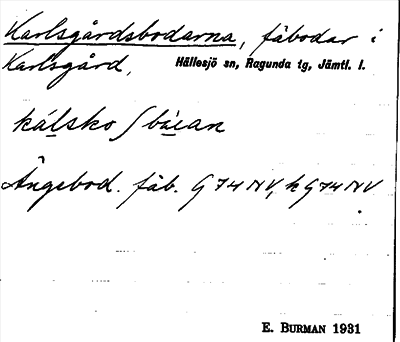 Karlsgårdsbodarna, fäbodar i
Karlsgård, Hällesjö sn, Ragunda tg, Jämtl. l.
kálsko ʃ bùan
Ångebod. fäb. G 74 NV, k G 74 NV
E. BURMAN 1931